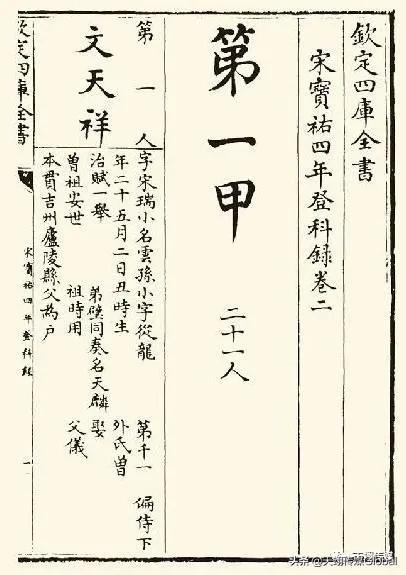 欽定四庫全書
宋寶祐四年登科錄卷二
第一甲 二十一人
第一人
文天祥
字宋瑞小名雲孫小字從龍 第千一 偏侍下
年二十五月二日丑時生 外氏曾
治賦一舉 弟璧同奏名天麟 娶
曾祖安世 祖時用 父儀
本貫吉州廬陵縣父為戶
欽定四庫全書
宋寶祐四年登科錄
一
头条 @天翰传媒Global